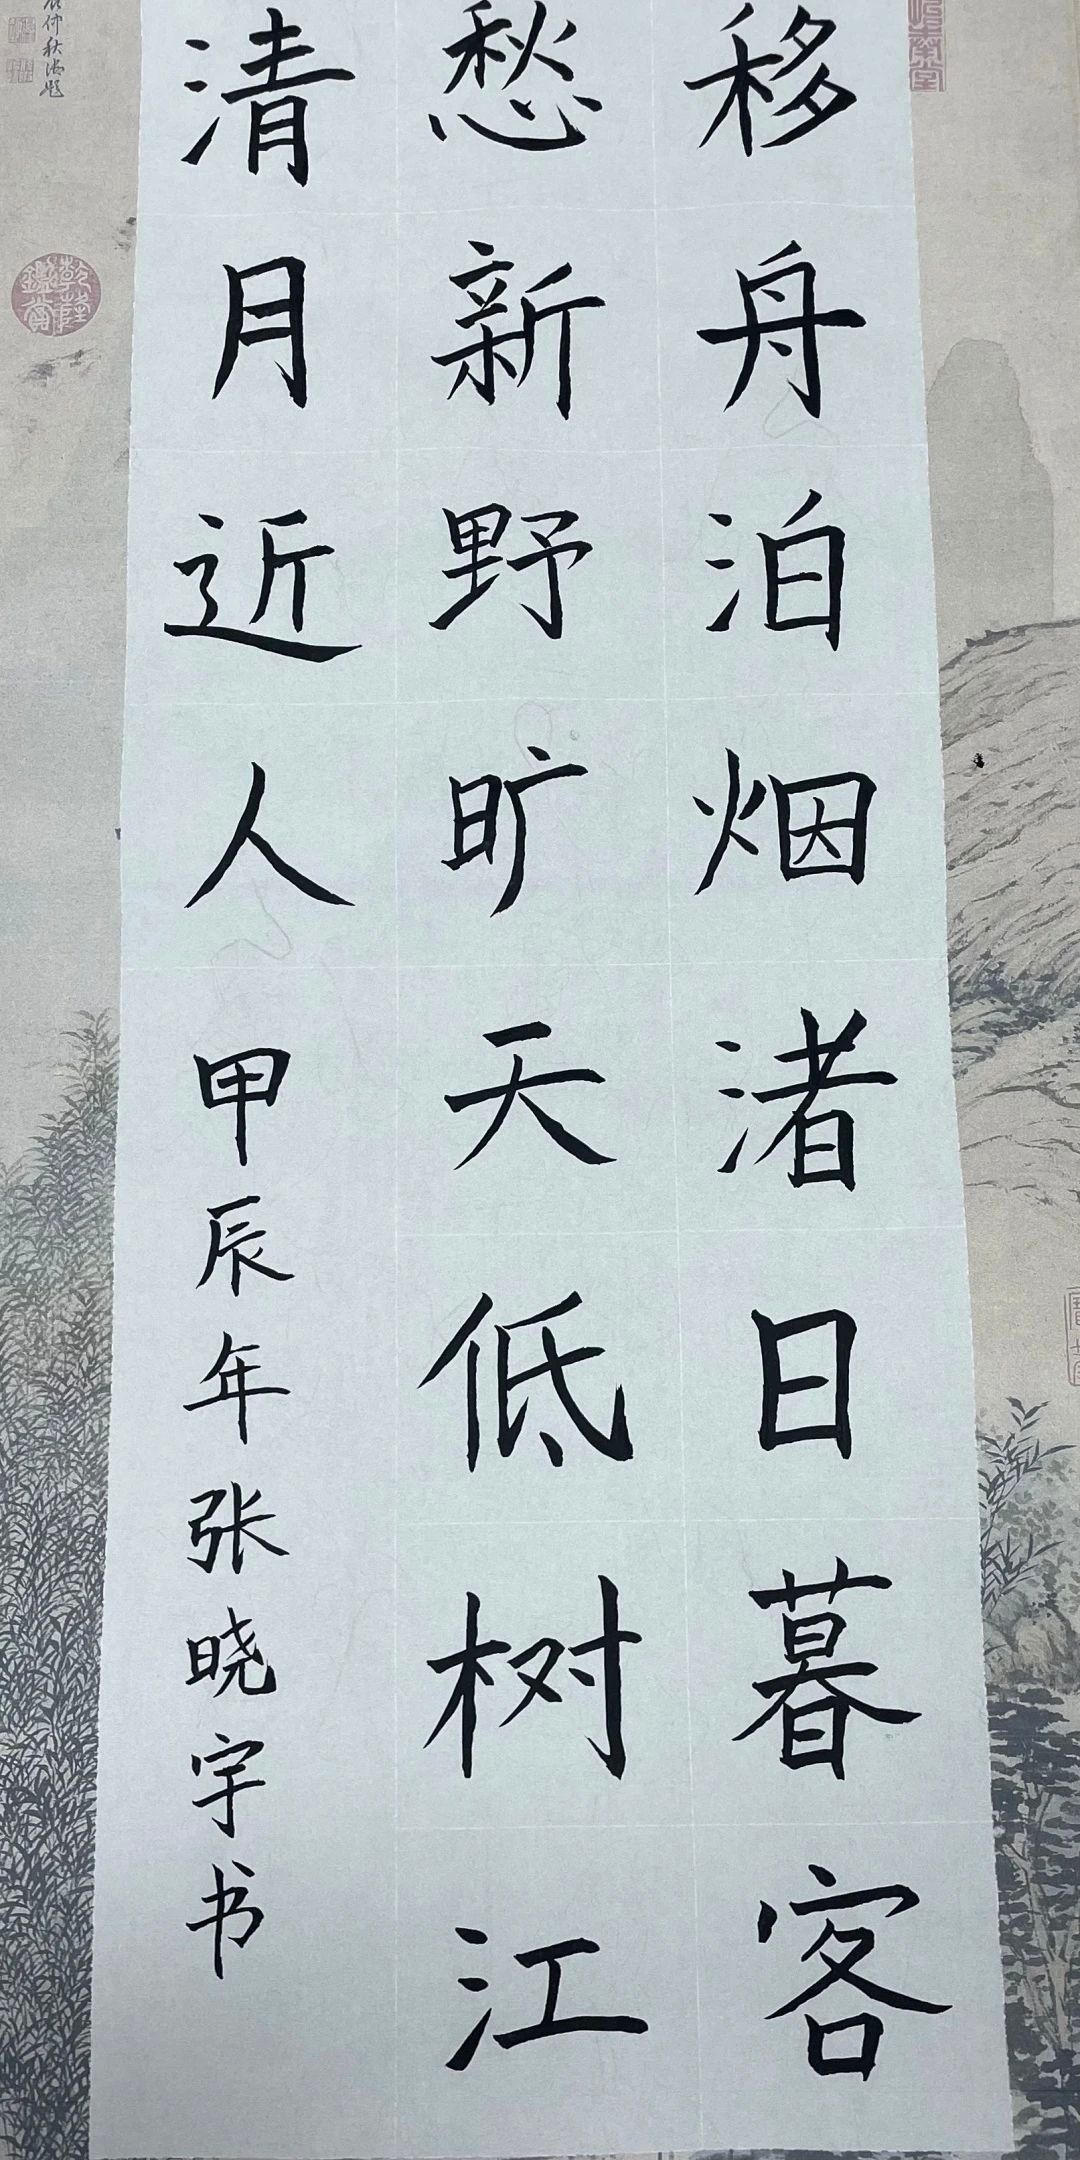 移舟泊烟渚日暮客
愁新野旷天低树江
清月近人
甲辰年张晓宇书